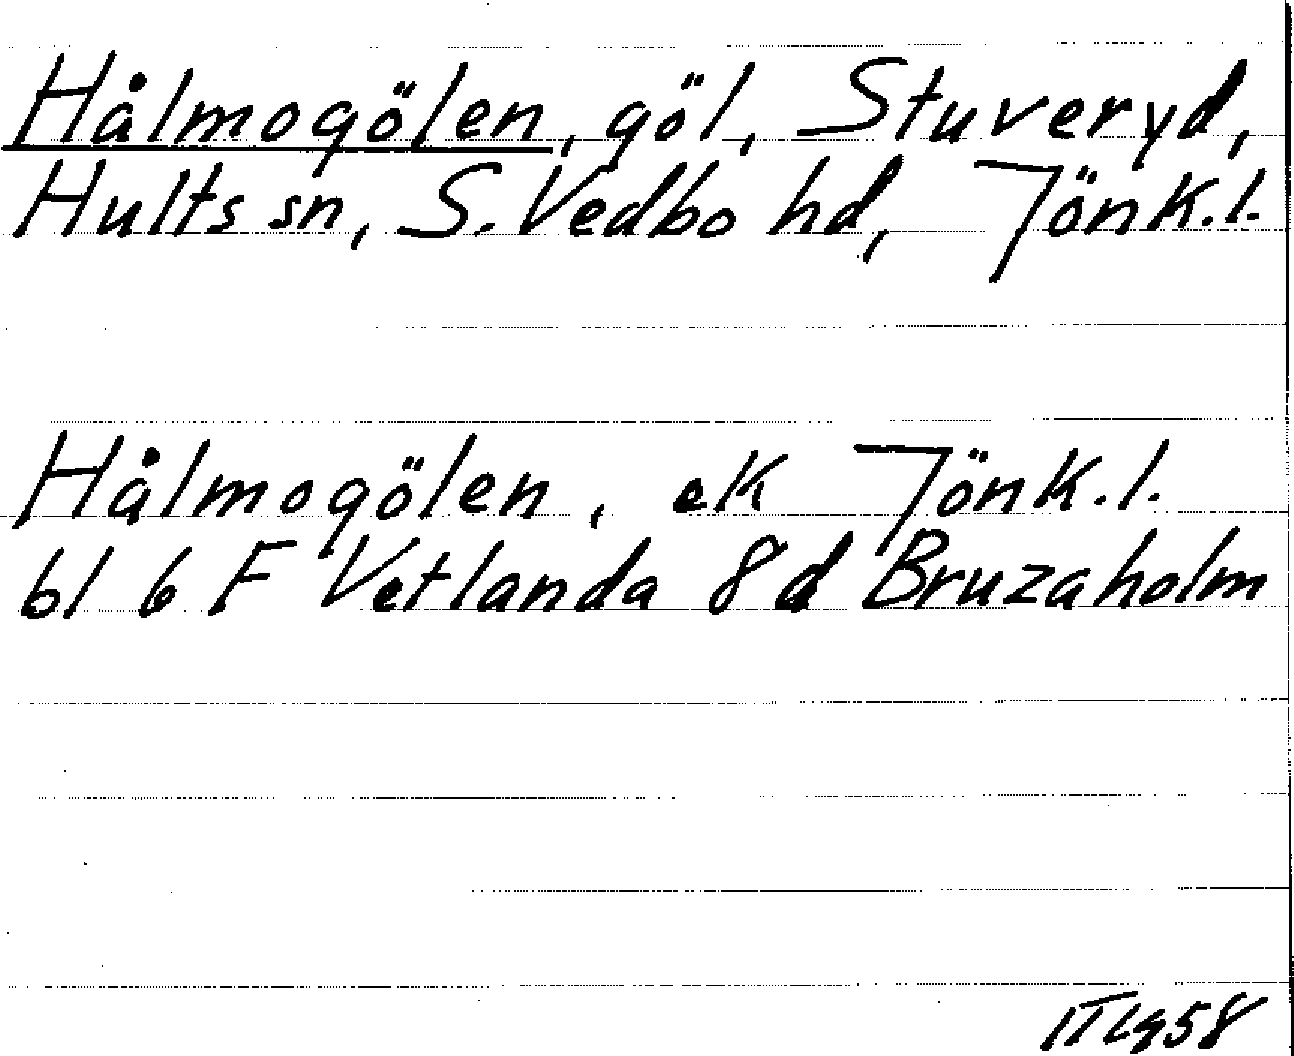 Hålmogölen, göl, Stuveryd,
Hults sn, S. Vedbo hd, Jönk.l.
Hålmogölen, ek Jönk.l.
bl 6 F Vetlanda 8d Bruzaholm